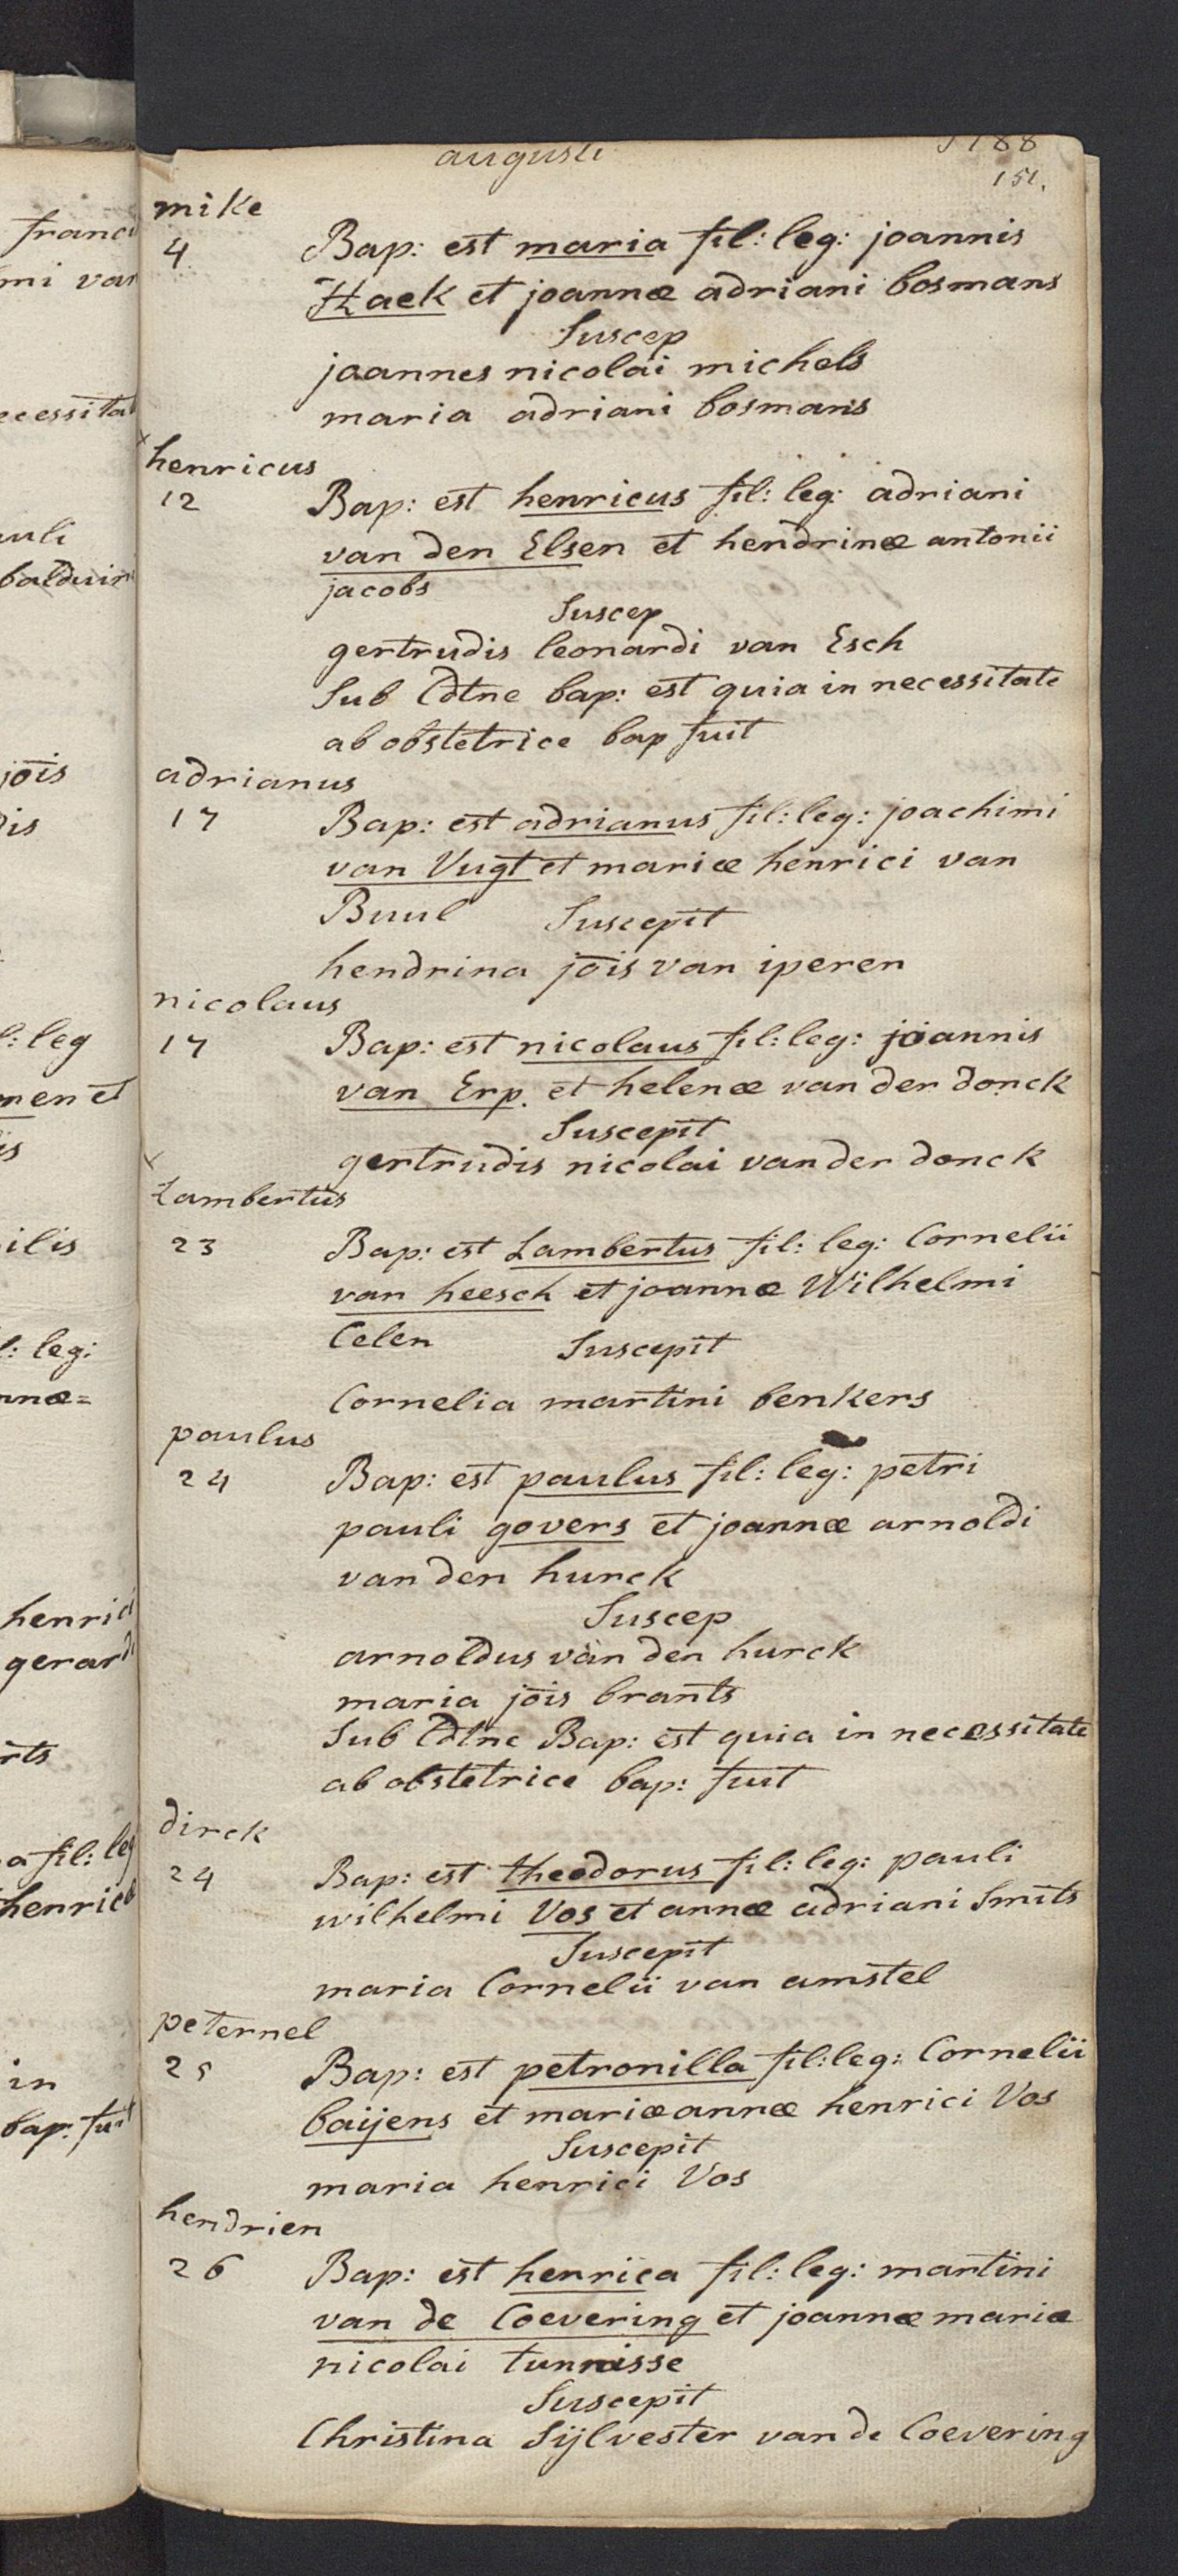 augusti
1788
151.
mike
4 Bap: est maria fil: leg: joannis
Haek et joannæ adriani bosmans
Suscep
joannes nicolai michels
maria adriani bosmans
henricus
12 Bap: est henricus fil: leg: adriani
van den Elsen et hendrinæ antonii
jacobs
Suscep
gertrudis leonardi van Esch
Sub Cdtne bap: est quia in necessitate
ab obstetrice bap fuit
adrianus
17 Bap: est adrianus fil: leg: joachimi
van Vugt et mariæ henrici van
Buul Suscepit
hendrina jois van iperen
nicolaus
17 Bap: est nicolaus fil: leg: joannis
van Erp. et helenæ van der donck
Suscepit
gertrudis nicolai van der donck
Lambertus
23 Bap: est Lambertus fil: leg: Cornelii
van heesch et joannæ Wilhelmi
Celen Suscepit
Cornelia martini benkers
paulus
24 Bap: est paulus fil: leg: petri
pauli govers et joannæ arnoldi
van den hurck
Suscep
arnoldus van den hurck
maria jois brants
Sub Cdtne Bap: est quia in necessitate
ab obstetrice bap: fuit
dirck
24 Bap: est theodorus fil: leg: pauli
wilhelmi Vos et annæ adriani Smits
Suscepit
maria Cornelii van amstel
peternel
25 Bap: est petronilla fil: leg: Cornelii
baijens et mariæ annæ henrici Vos
Suscepit
maria henrici Vos
hendrien
26 Bap: est henrica fil: leg: martini
van de Coevering et joannæ mariæ
nicolai tunnisse
Suscepit
Christina Sijlvester van de Coevering